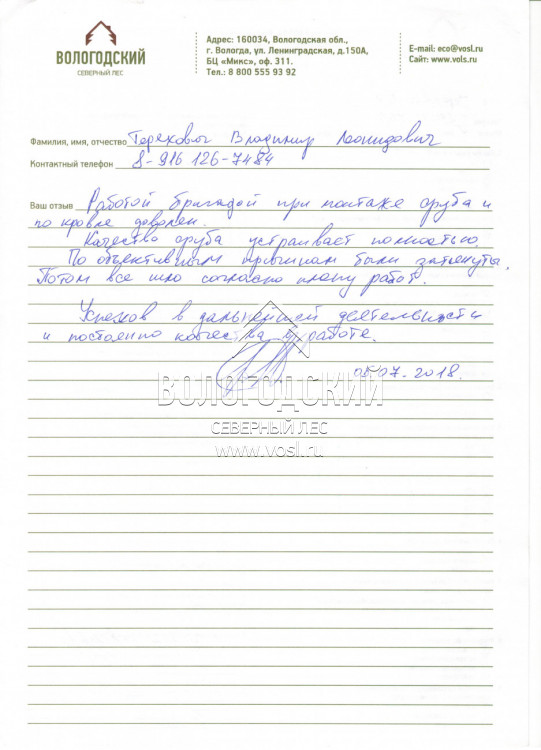 ВОЛОГОДСКИЙ
СЕВЕРНЫЙ ЛЕС
Адрес: 160034, Вологодская обл.,
г. Вологда, ул. Ленинградская, д.150А,
БЦ «Микс», оф. 311.
Тел.: 8 800 555 93 92
E-mail: eco@vosl.ru
Сайт: www.vols.ru
Фамилия, имя, отчество Терехович Владимир Леонидович
Контактный телефон 8-916 126-7484
Ваш отзыв Работой бригадой при монтаже сруба и
по кровле доволен.
Качество сруба устраивает полностью.
По объективным причинам были затянуты,
Потом все шло согласно плану работ.
Успехов в дальнейшей деятельности
и постоянно качества в работе.
05.07.2018.
ВОЛОГОДСКИЙ
СЕВЕРНЫЙ ЛЕС
www.vosl.ru